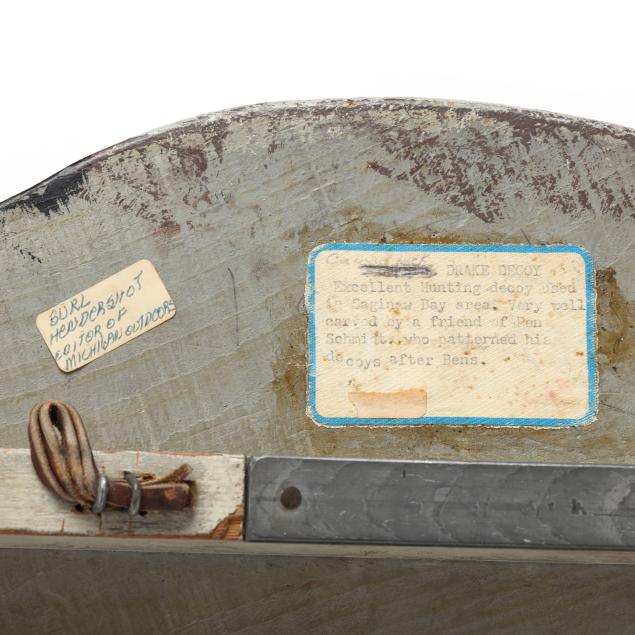 BURL
HENDERSHOT
EDITOR OF
MICHIGAN OUTDOORS
DRAKE DECOY
Excellent Hunting decoy used
in Saginaw Bay area. Very well
carved by a friend of Ben
Schmidt, who patterned his
decoys after Bens.